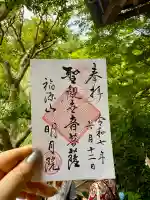 奉拝
令和七年
六月十二日
聖観世音菩薩
福源山 明月院